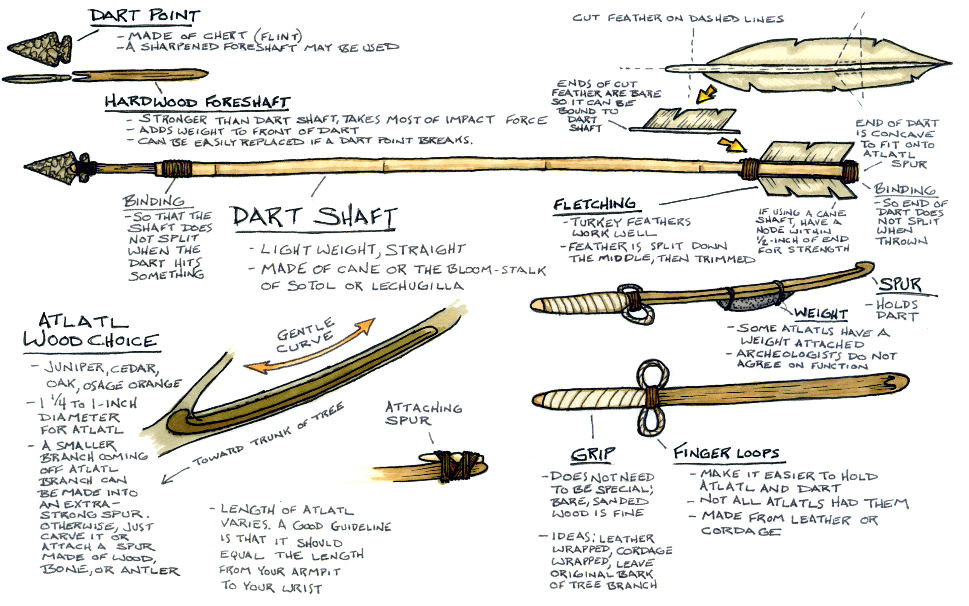 DART POINT
- MADE OF CHERT (FLINT)
- A SHARPENED FORESHAFT MAY BE USED
HARDWOOD FORESHAFT
- STRONGER THAN DART SHAFT, TAKES MOST OF IMPACT FORCE
- ADDS WEIGHT TO FRONT OF DART
- CAN BE EASILY REPLACED IF A DART POINT BREAKS.
CUT FEATHER ON DASHED LINES
ENDS OF CUT
FEATHER ARE BARE
SO IT CAN BE
BOUND TO
DART
SHAFT
END OF DART
IS CONCAVE
TO FIT ONTO
ATLATL
SPUR
BINDING
- SO THAT THE
SHAFT DOES
NOT SPLIT
WHEN THE
DART HITS
SOMETHING
DART SHAFT
- LIGHT WEIGHT, STRAIGHT
- MADE OF CANE OR THE BLOOM-STALK
OF SOTOL OR LECHUGILLA
FLETCHING
- TURKEY FEATHERS
WORK WELL
- FEATHER IS SPLIT DOWN
THE MIDDLE, THEN TRIMMED
IF USING A CANE
SHAFT, HAVE A
NODE WITHIN
1/2-INCH OF END
FOR STRENGTH
BINDING
- SO END OF
DART DOES
NOT SPLIT
WHEN
THROWN
SPUR
- HOLDS
DART
WEIGHT
- SOME ATLATLS HAVE A
WEIGHT ATTACHED
- ARCHEOLOGISTS DO NOT
AGREE ON FUNCTION
ATLATL
WOOD CHOICE
- JUNIPER, CEDAR,
OAK, OSAGE ORANGE
- 1 1/4 TO 1-INCH
DIAMETER
FOR ATLATL
- A SMALLER
BRANCH COMING
OFF ATLATL
BRANCH CAN
BE MADE INTO
AN EXTRA-
STRONG SPUR.
OTHERWISE, JUST
CARVE IT OR
ATTACH A SPUR
MADE OF WOOD,
BONE, OR ANTLER
GENTLE
CURVE
TOWARD TRUNK OF TREE
ATTACHING
SPUR
- LENGTH OF ATLATL
VARIES. A GOOD GUIDELINE
IS THAT IT SHOULD
EQUAL THE LENGTH
FROM YOUR ARMPIT
TO YOUR WRIST
GRIP
- DOES NOT NEED
TO BE SPECIAL;
BARE, SANDED
WOOD IS FINE
- IDEAS: LEATHER
WRAPPED, CORDAGE
WRAPPED, LEAVE
ORIGINAL BARK
OF TREE BRANCH
FINGER LOOPS
- MAKE IT EASIER TO HOLD
ATLATL AND DART
- NOT ALL ATLATLS HAD THEM
- MADE FROM LEATHER OR
CORDAGE